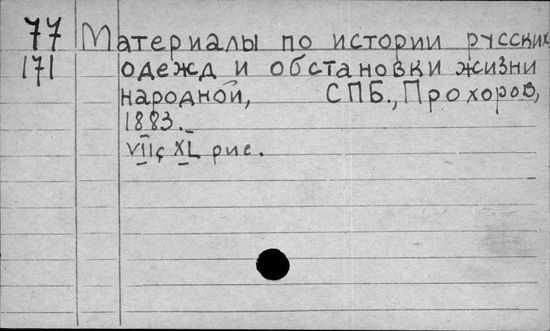 77 Материалы по истории русских
171 одежд и обстановки жизни
народной, СПБ., Прохоров,
1883.
VIIс XL рис.